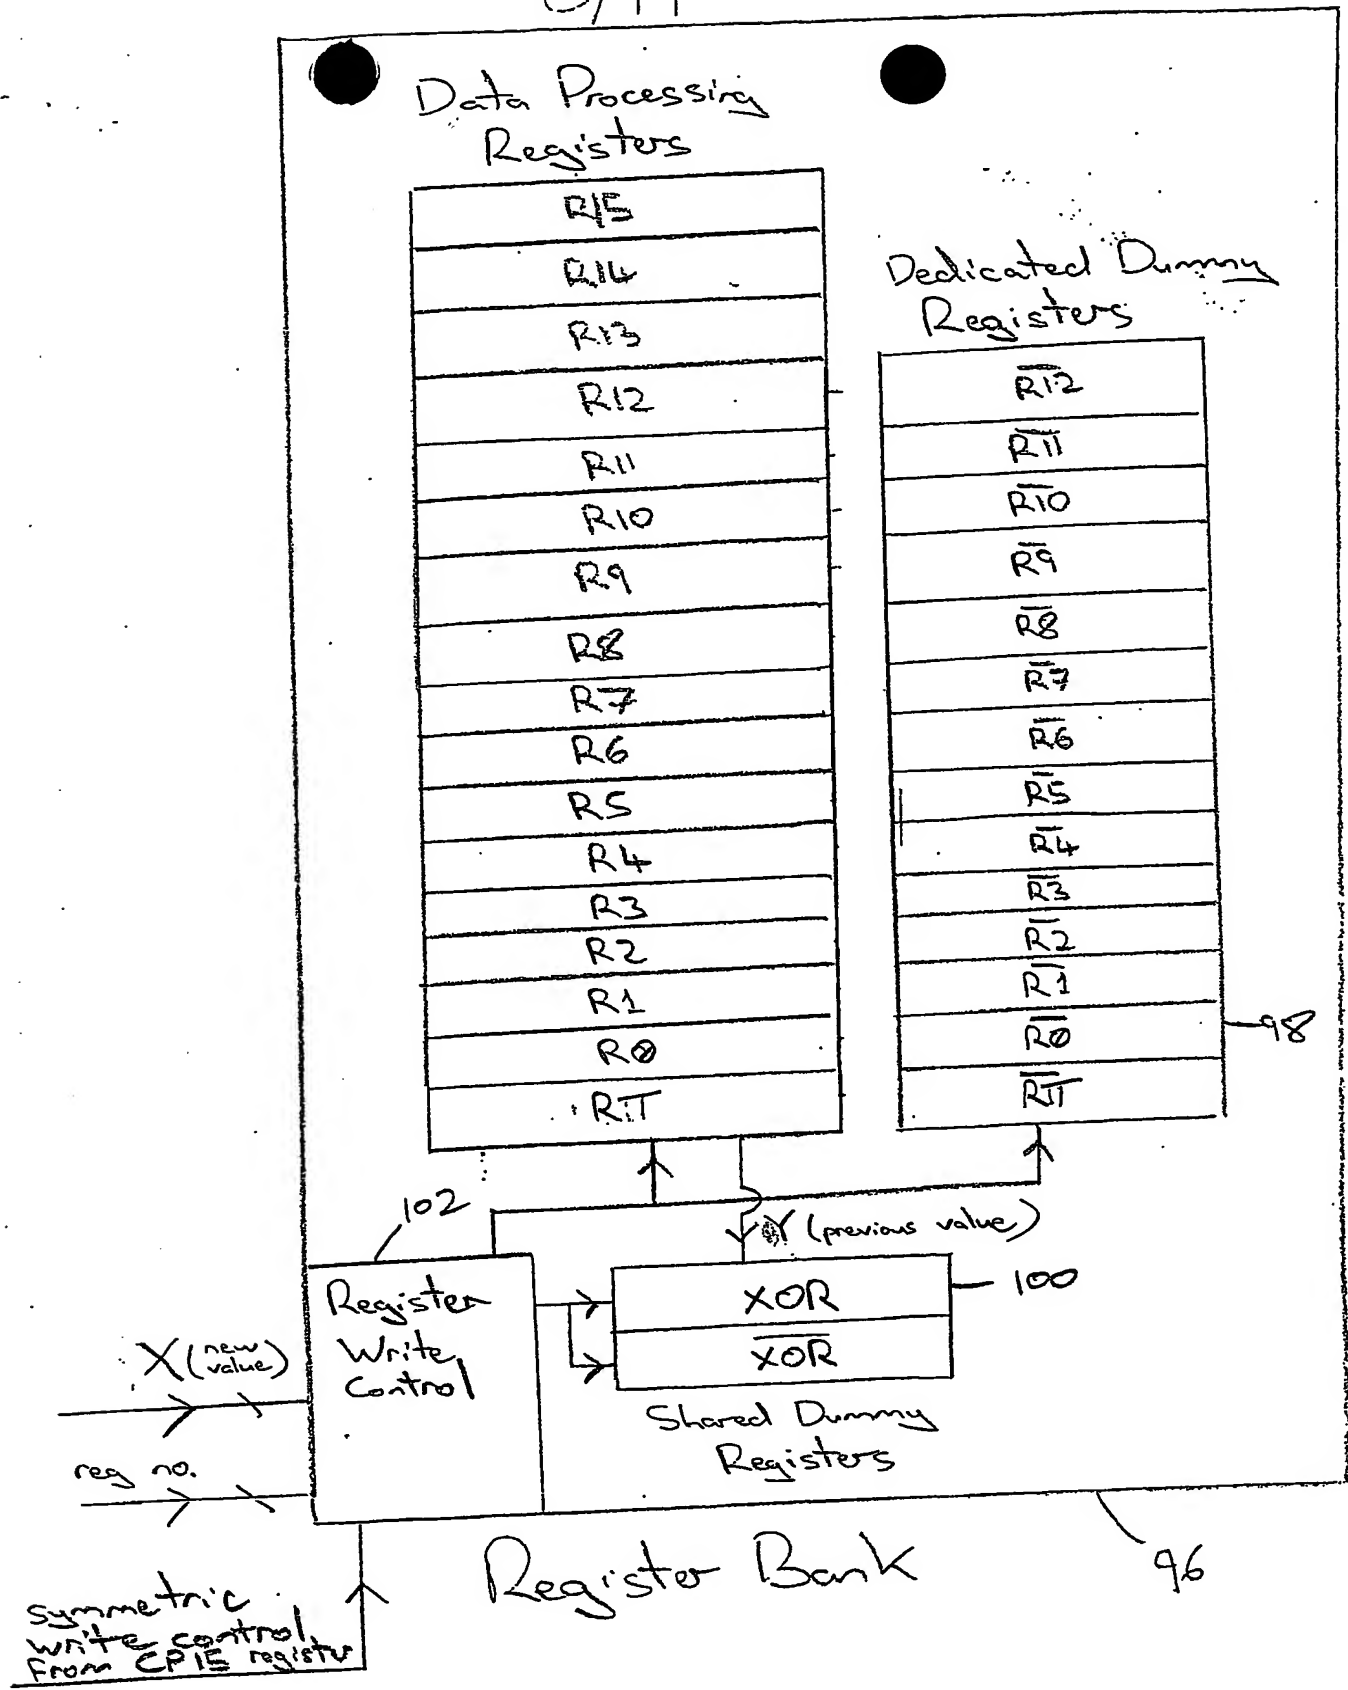 Data Processing
Registers
R15
R14
R13
R12
R11
R10
R9
R8
R7
R6
R5
R4
R3
R2
R1
R0
RT
Dedicated Dummy
Registers
R̅1̅2̅
R̅1̅1̅
R̅1̅0̅
R̅9̅
R̅8̅
R̅7̅
R̅6̅
R̅5̅
R̅4̅
R̅3̅
R̅2̅
R̅1̅
R̅0̅
R̅T̅
98
102
Y (previous value)
Register
Write
Control
XOR
X̅O̅R̅
100
Shared Dummy
Registers
X (new value)
reg no.
symmetric
write control
from CP15 register
Register Bank
96